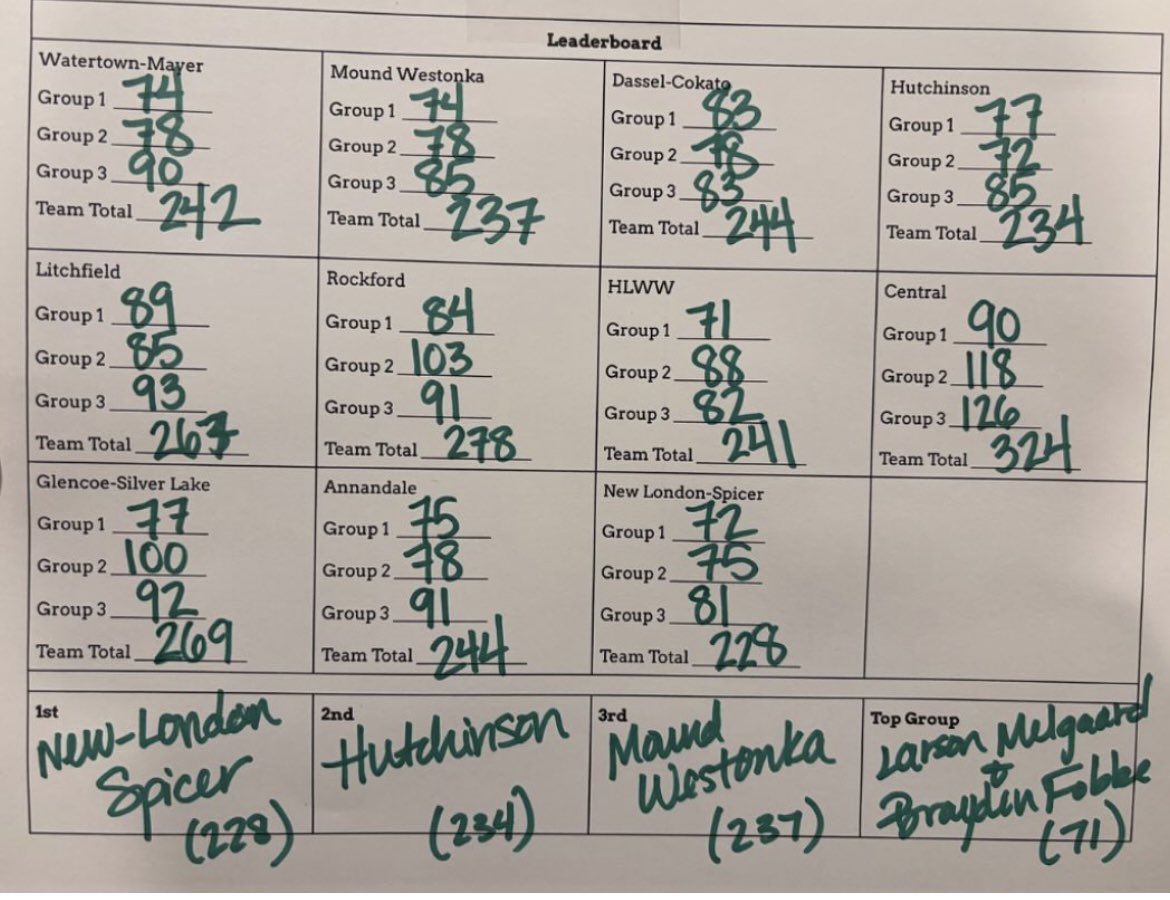 Leaderboard
Watertown-Mayer
Group 1 74
Group 2 78
Group 3 90
Team Total 242
Mound Westonka
Group 1 74
Group 2 78
Group 3 85
Team Total 237
Dassel-Cokato
Group 1 83
Group 2 78
Group 3 83
Team Total 244
Hutchinson
Group 1 77
Group 2 72
Group 3 85
Team Total 234
Litchfield
Group 1 89
Group 2 85
Group 3 93
Team Total 267
Rockford
Group 1 84
Group 2 103
Group 3 91
Team Total 278
HLWW
Group 1 71
Group 2 88
Group 3 82
Team Total 241
Central
Group 1 90
Group 2 118
Group 3 126
Team Total 324
Glencoe-Silver Lake
Group 1 77
Group 2 100
Group 3 92
Team Total 269
Annandale
Group 1 75
Group 2 78
Group 3 91
Team Total 244
New London-Spicer
Group 1 72
Group 2 75
Group 3 81
Team Total 228
1st
New-London
Spicer
(228)
2nd
Hutchinson
(234)
3rd
Mound
Westonka
(237)
Top Group
Larson Melgaard
+
Brayden Fobbe
(71)